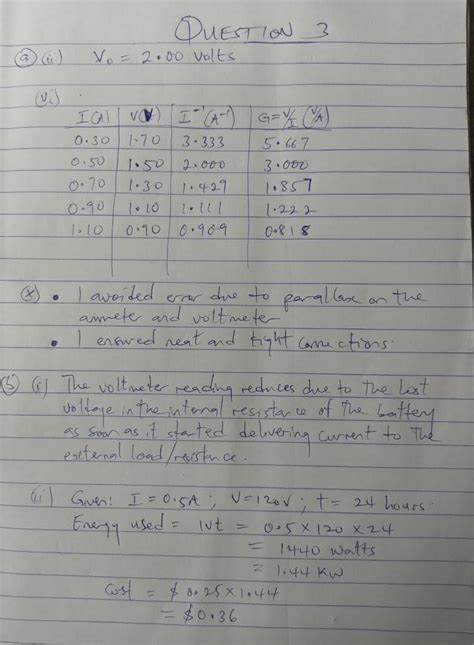 QUESTION 3
(a) (ii) V₀ = 2.00 volts
(vi)
I(A) V(V) I⁻¹(A⁻¹) G=V/I (V/A)
0.30 1.70 3.333 5.667
0.50 1.50 2.000 3.000
0.70 1.30 1.429 1.857
0.90 1.10 1.111 1.222
1.10 0.90 0.909 0.818
(x) • I avoided error due to parallax on the
ammeter and voltmeter
• I ensured neat and tight connections.
(b) (i) The voltmeter reading reduces due to the lost
voltage in the internal resistance of the battery
as soon as it started delivering current to the
external load/resistance.
(ii) Given: I = 0.5A; V=120V; t= 24 hours
Energy used = IVt = 0.5 x 120 x 24
= 1440 watts
= 1.44 KW
Cost = $0.25 x 1.44
= $0.36